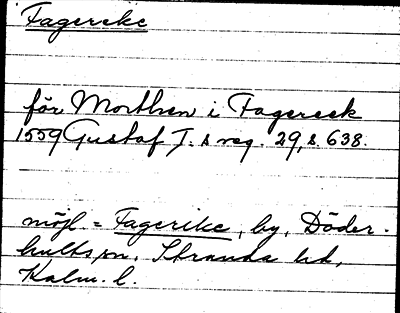 Fagereke
för Morthen i Fagereek
1559 Gustaf I. s reg. 29, s. 638.
möjl = Fagerike, by, Döder-
hults sn, Stranda hd,
Kalm. l.